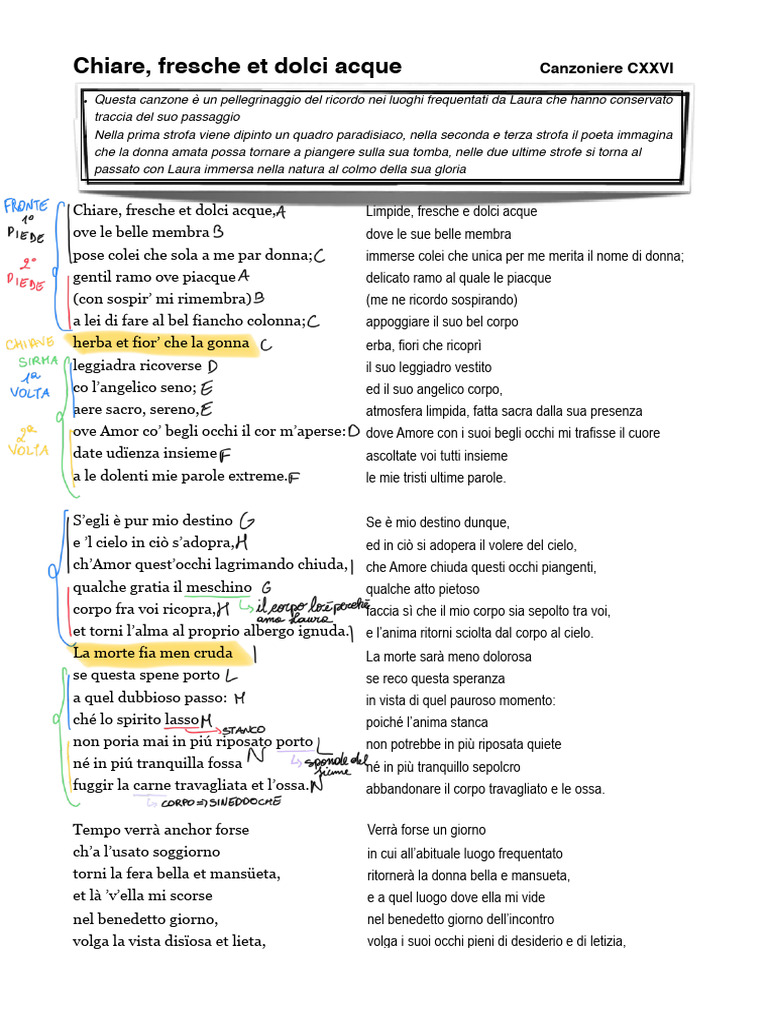 Chiare, fresche et dolci acque Canzoniere CXXVI
• Questa canzone è un pellegrinaggio del ricordo nei luoghi frequentati da Laura che hanno conservato
traccia del suo passaggio
Nella prima strofa viene dipinto un quadro paradisiaco, nella seconda e terza strofa il poeta immagina
che la donna amata possa tornare a piangere sulla sua tomba, nelle due ultime strofe si torna al
passato con Laura immersa nella natura al colmo della sua gloria
FRONTE
1°
PIEDE
2°
PIEDE
CHIAVE
SIRMA
1a
VOLTA
2a
VOLTA
Chiare, fresche et dolci acque, A
ove le belle membra B
pose colei che sola a me par donna; C
gentil ramo ove piacque A
(con sospir’ mi rimembra) B
a lei di fare al bel fiancho colonna; C
herba et fior’ che la gonna C
leggiadra ricoverse D
co l’angelico seno; E
aere sacro, sereno, E
ove Amor co’ begli occhi il cor m’aperse: D
date udïenza insieme F
a le dolenti mie parole extreme. F
Limpide, fresche e dolci acque
dove le sue belle membra
immerse colei che unica per me merita il nome di donna;
delicato ramo al quale le piacque
(me ne ricordo sospirando)
appoggiare il suo bel corpo
erba, fiori che ricoprì
il suo leggiadro vestito
ed il suo angelico corpo,
atmosfera limpida, fatta sacra dalla sua presenza
dove Amore con i suoi begli occhi mi trafisse il cuore
ascoltate voi tutti insieme
le mie tristi ultime parole.
S’egli è pur mio destino G
e ’l cielo in ciò s’adopra, H
ch’Amor quest’occhi lagrimando chiuda, I
qualche gratia il meschino G
il corpo lo è perché
ama Laura
corpo fra voi ricopra, H
et torni l’alma al proprio albergo ignuda. I
La morte fia men cruda I
se questa spene porto L
a quel dubbioso passo: M
ché lo spirito lasso M
STANCO
non poria mai in piú riposato porto L
sponde del
fiume
né in piú tranquilla fossa N
fuggir la carne travagliata et l’ossa. N
CORPO => SINEDDOCHE
Se è mio destino dunque,
ed in ciò si adopera il volere del cielo,
che Amore chiuda questi occhi piangenti,
qualche atto pietoso
faccia sì che il mio corpo sia sepolto tra voi,
e l’anima ritorni sciolta dal corpo al cielo.
La morte sarà meno dolorosa
se reco questa speranza
in vista di quel pauroso momento:
poiché l’anima stanca
non potrebbe in più riposata quiete
né in più tranquillo sepolcro
abbandonare il corpo travagliato e le ossa.
Tempo verrà anchor forse
ch’a l’usato soggiorno
torni la fera bella et mansüeta,
et là ’v’ella mi scorse
nel benedetto giorno,
volga la vista disïosa et lieta,
Verrà forse un giorno
in cui all’abituale luogo frequentato
ritornerà la donna bella e mansueta,
e a quel luogo dove ella mi vide
nel benedetto giorno dell’incontro
volga i suoi occhi pieni di desiderio e di letizia,